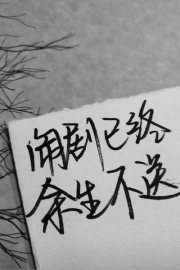 闹剧已终
余生不送